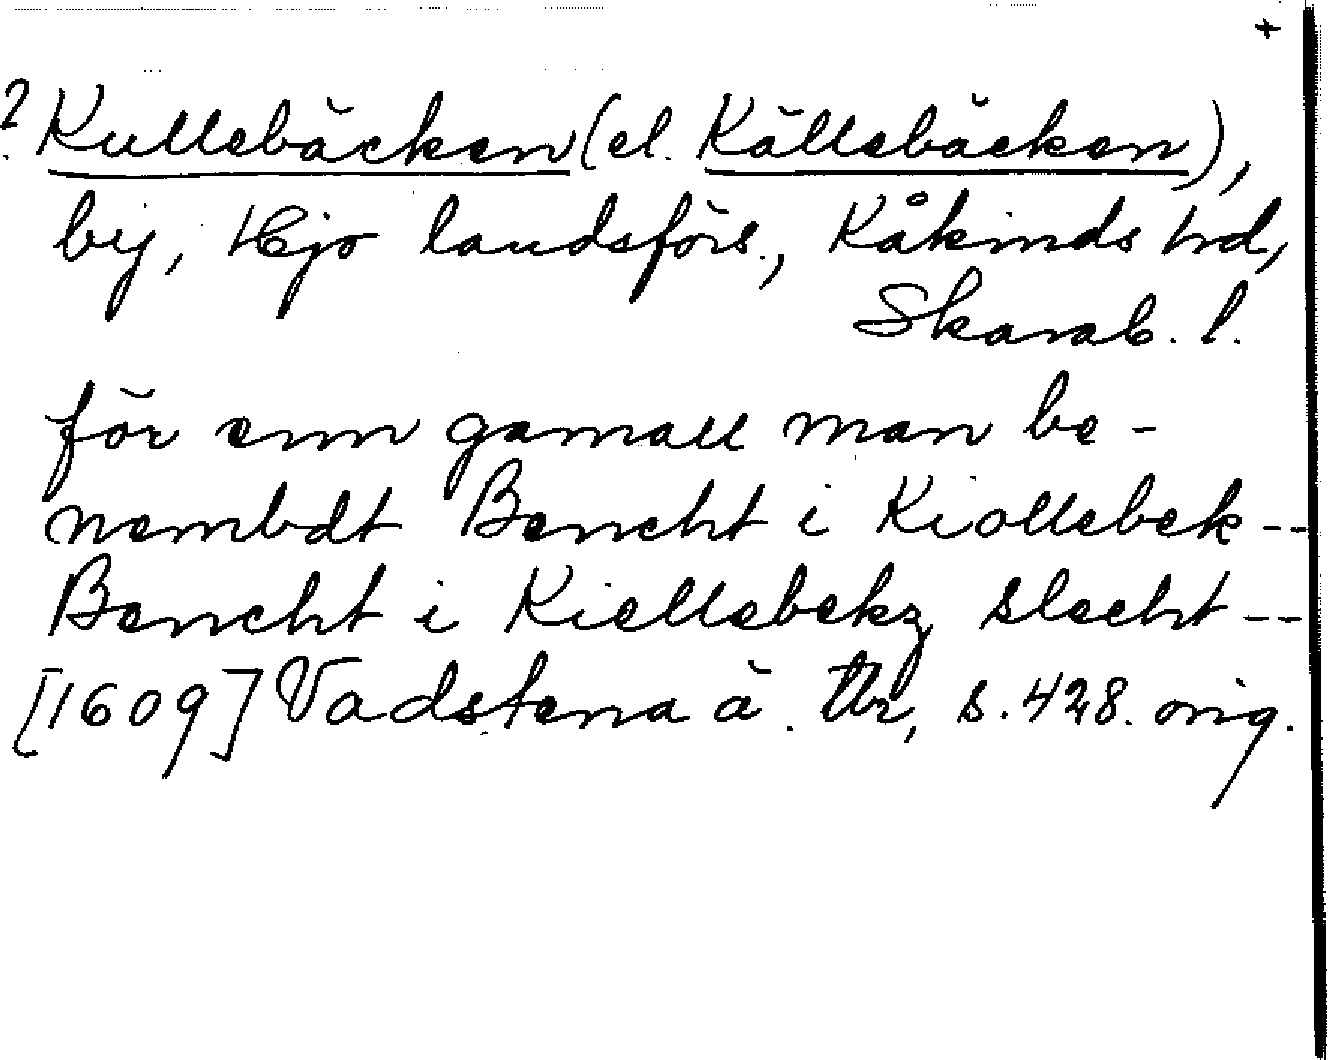 +
? Kullebäcken (el. Källebäcken),
by, Hjo landsförs., Kåkinds hd,
Skarab. l.
för enn gamall man be-
nembdt Bencht i Kiollebek --
Bencht i Kiellebekz slecht --
[1609] Vadstena ä. Tb, s. 428. orig.